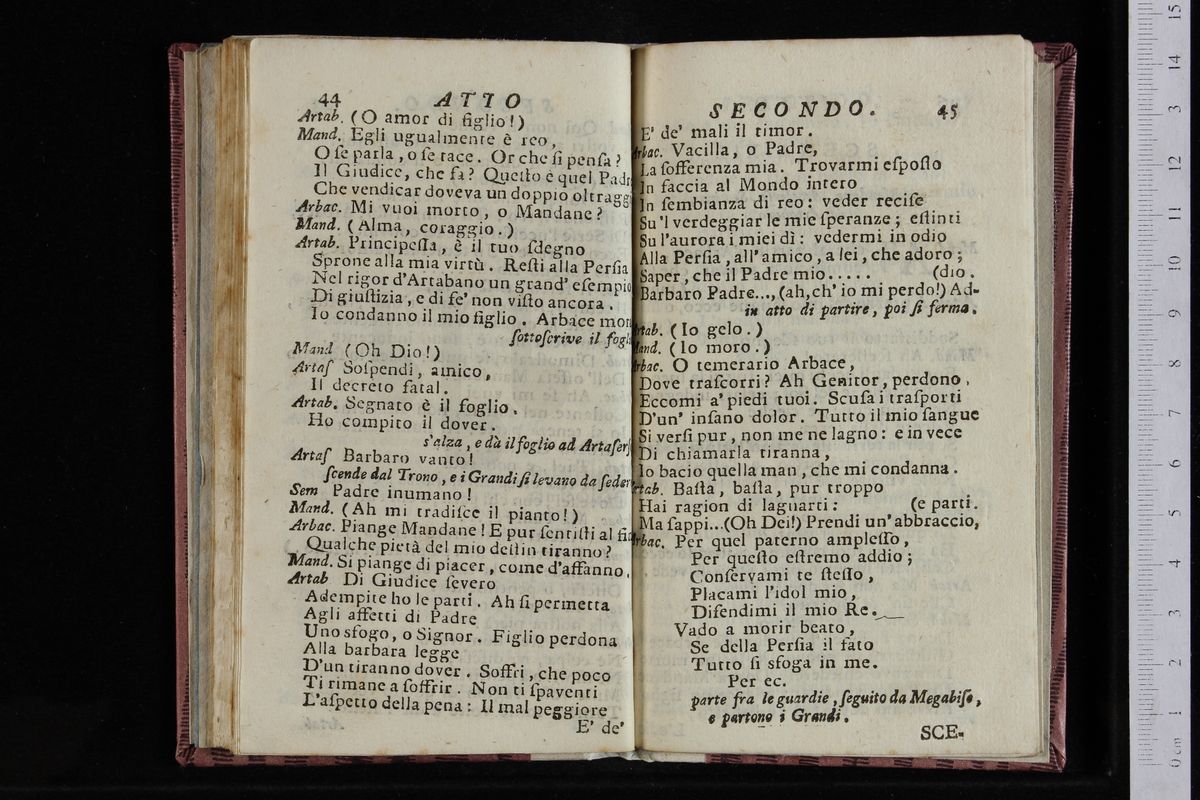 44 ATTO
Artab. (O amor di figlio!)
Mand. Egli ugualmente è reo,
O ſe parla, o ſe tace. Or che ſi penſa?
Il Giudice, che fa? Queſto è quel Padr
Che vendicar doveva un doppio oltragg
Arbac. Mi vuoi morto, o Mandane?
Mand. (Alma, coraggio.)
Artab. Principeſſa, è il tuo ſdegno
Sprone alla mia virtù. Reſti alla Perſia
Nel rigor d'Artabano un grand' eſempio
Di giuſtizia, e di fe' non viſto ancora.
Io condanno il mio figlio. Arbace mor
ſottoſcrive il fogl
Mand (Oh Dio!)
Artaſ Soſpendi, amico,
Il decreto fatal.
Artab. Segnato è il foglio.
Ho compito il dover.
s'alza, e dà il foglio ad Artaſerſ
Artaſ Barbaro vanto!
ſcende dal Trono, e i Grandi ſi levano da ſeder
Sem Padre inumano!
Mand. (Ah mi tradiſce il pianto!)
Arbac. Piange Mandane! E pur ſentiſti al fi
Qualche pietà del mio deſtin tiranno?
Mand. Si piange di piacer, come d'affanno.
Artab Di Giudice ſevero
Adempite ho le parti. Ah ſi permetta
Agli affetti di Padre
Uno sfogo, o Signor. Figlio perdona
Alla barbara legge
D'un tiranno dover. Soffri, che poco
Ti rimane a ſoffrir. Non ti ſpaventi
L'aſpetto della pena: Il mal peggiore
E' de'
SECONDO. 45
E' de' mali il timor.
Arbac. Vacilla, o Padre,
La ſofferenza mia. Trovarmi eſpoſto
In faccia al Mondo intero
In ſembianza di reo: veder reciſe
Su'l verdeggiar le mie ſperanze; eſtinti
Su l'aurora i miei dì: vedermi in odio
Alla Perſia, all' amico, a lei, che adoro;
Saper, che il Padre mio..... (dio.
Barbaro Padre..., (ah, ch' io mi perdo!) Ad-
in atto di partire, poi ſi ferma.
Artab. (Io gelo.)
Mand. (Io moro.)
Arbac. O temerario Arbace,
Dove traſcorri? Ah Genitor, perdono.
Eccomi a' piedi tuoi. Scuſa i traſporti
D'un' inſano dolor. Tutto il mio ſangue
Si verſi pur, non me ne lagno: e in vece
Di chiamarla tiranna,
Io bacio quella man, che mi condanna.
Artab. Baſta, baſta, pur troppo
Hai ragion di lagnarti: (e parti.
Ma ſappi...(Oh Dei!) Prendi un' abbraccio,
Arbac. Per quel paterno ampleſſo,
Per queſto eſtremo addio;
Conſervami te ſteſſo,
Placami l'idol mio,
Difendimi il mio Re.
Vado a morir beato,
Se della Perſia il fato
Tutto ſi sfoga in me.
Per ec.
parte fra le guardie, ſeguito da Megabiſe,
e partono i Grandi.
SCE-
0 cm 1 2 3 4 5 6 7 8 9 10 11 12 13 14 15